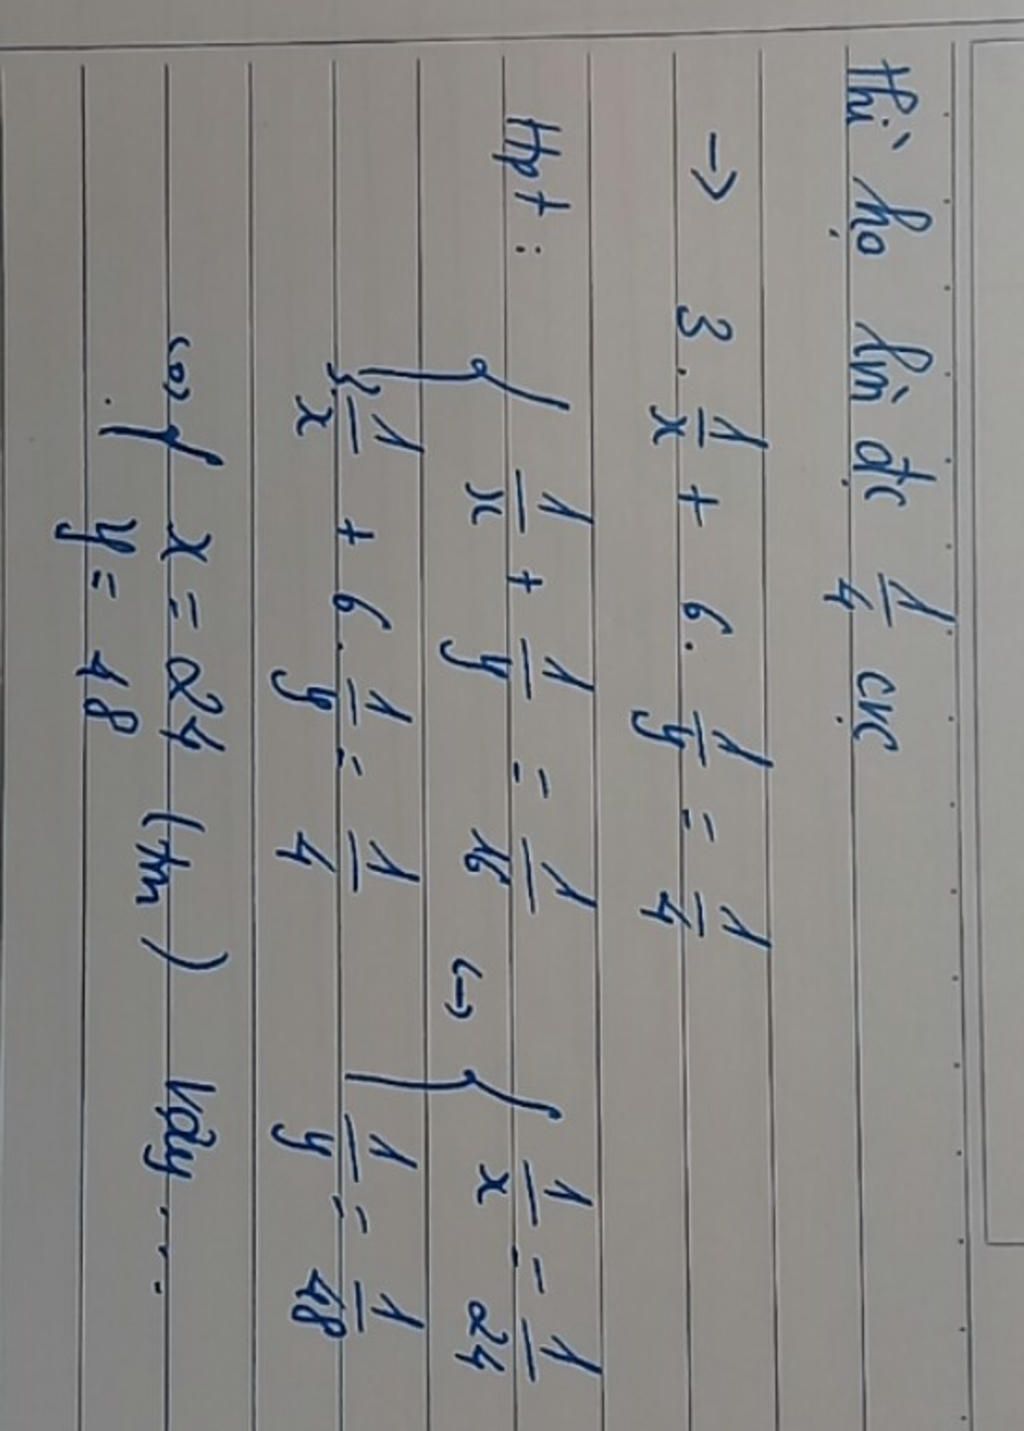 thì họ làm đc 1/4 cv
→ 3. 1/x + 6. 1/y = 1/4
Hpt : { 1/x + 1/y = 1/16
3. 1/x + 6. 1/y = 1/4 ↔ { 1/x = 1/24
1/y = 1/48
⇔ { x = 24 (tm) Vậy ....
y = 48